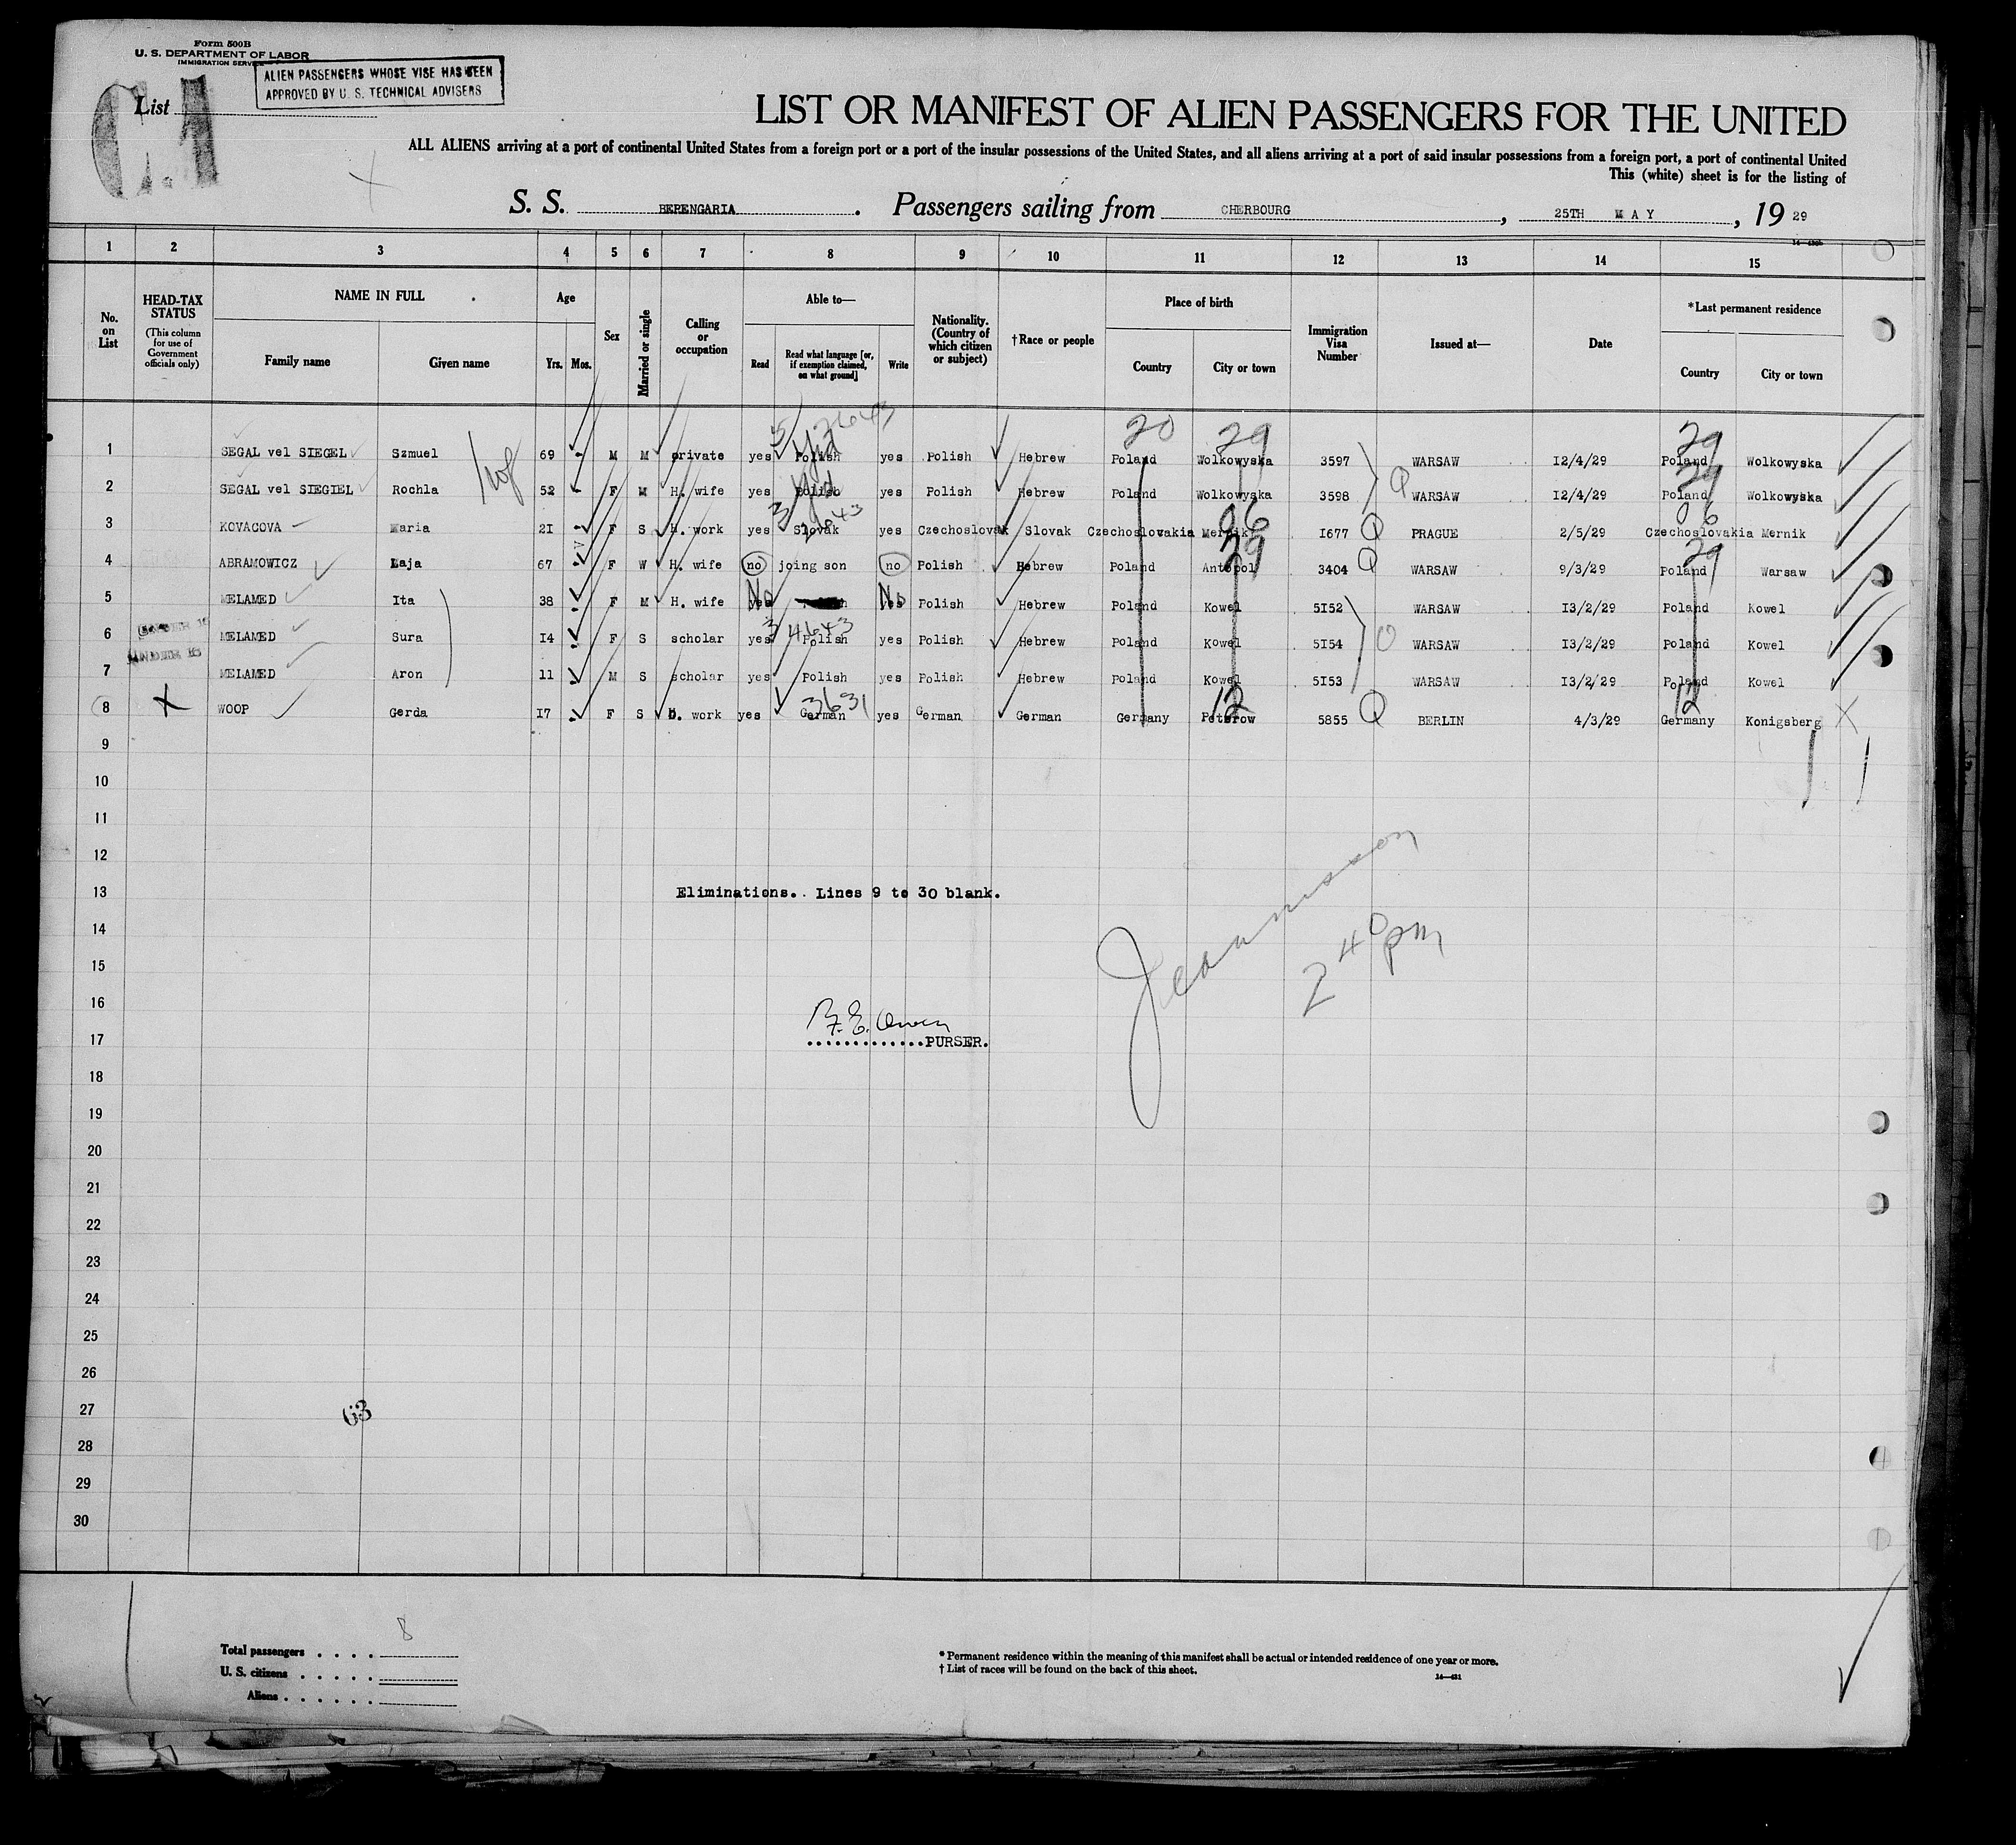 Form 500B
U. S. DEPARTMENT OF LABOR
IMMIGRATION SERVICE
ALIEN PASSENGERS WHOSE VISE HAS BEEN
APPROVED BY U. S. TECHNICAL ADVISERS
List
LIST OR MANIFEST OF ALIEN PASSENGERS FOR THE UNITED
ALL ALIENS arriving at a port of continental United States from a foreign port or a port of the insular possessions of the United States, and all aliens arriving at a port of said insular possessions from a foreign port, a port of continental United
This (white) sheet is for the listing of
S. S. BERENGARIA. Passengers sailing from CHERBOURG, 25TH MAY, 19 29
1 2 3 4 5 6 7 8 9 10 11 12 13 14 15
No. on List
HEAD-TAX STATUS
(This column for use of Government officials only)
NAME IN FULL
Family name
Given name
Age
Yrs. Mos.
Sex
Married or single
Calling or occupation
Able to—
Read
Read what language [or, if exemption claimed, on what ground]
Write
Nationality. (Country of which citizen or subject)
†Race or people
Place of birth
Country
City or town
Immigration Visa Number
Issued at—
Date
*Last permanent residence
Country
City or town
20 29 29
1 SEGAL vel SIEGEL Szmuel 69 M M private yes Polish Yid yes Polish Hebrew Poland Wolkowyska 3597 WARSAW 12/4/29 Poland Wolkowyska
2 SEGAL vel SIEGIEL Rochla 52 F M H. wife yes Polish Yid yes Polish Hebrew Poland Wolkowyska 3598 Q WARSAW 12/4/29 Poland Wolkowyska
3 KOVACOVA Maria 21 F S H. work yes Slovak yes Czechoslovak Slovak Czechoslovakia Mernik 1677 Q PRAGUE 2/5/29 Czechoslovakia Mernik
4 ABRAMOWICZ Laja 67 F W H. wife no joing son no Polish Hebrew Poland Antopol 3404 Q WARSAW 9/3/29 Poland Warsaw
5 MELAMED Ita 38 F M H. wife yes No yes No Polish Hebrew Poland Kowel 5152 WARSAW 13/2/29 Poland Kowel
6 MELAMED Sura 14 F S scholar yes Polish yes Polish Hebrew Poland Kowel 5154 WARSAW 13/2/29 Poland Kowel
UNDER 16
7 MELAMED Aron 11 M S scholar yes Polish yes Polish Hebrew Poland Kowel 5153 WARSAW 13/2/29 Poland Kowel
8 WOOP Gerda 17 F S D. work yes German 3631 yes German German Germany Peterow 12 5855 Q BERLIN 4/3/29 Germany 12 Konigsberg
9
10
11
12
13 Eliminations. Lines 9 to 30 blank.
14
15
2 40 pm
16
F. E. Owen
17 PURSER.
18
19
20
21
22
23
24
25
26
27
63
28
29
30
Total passengers 8
U. S. citizens
Aliens
* Permanent residence within the meaning of this manifest shall be actual or intended residence of one year or more.
† List of races will be found on the back of this sheet.
14—431